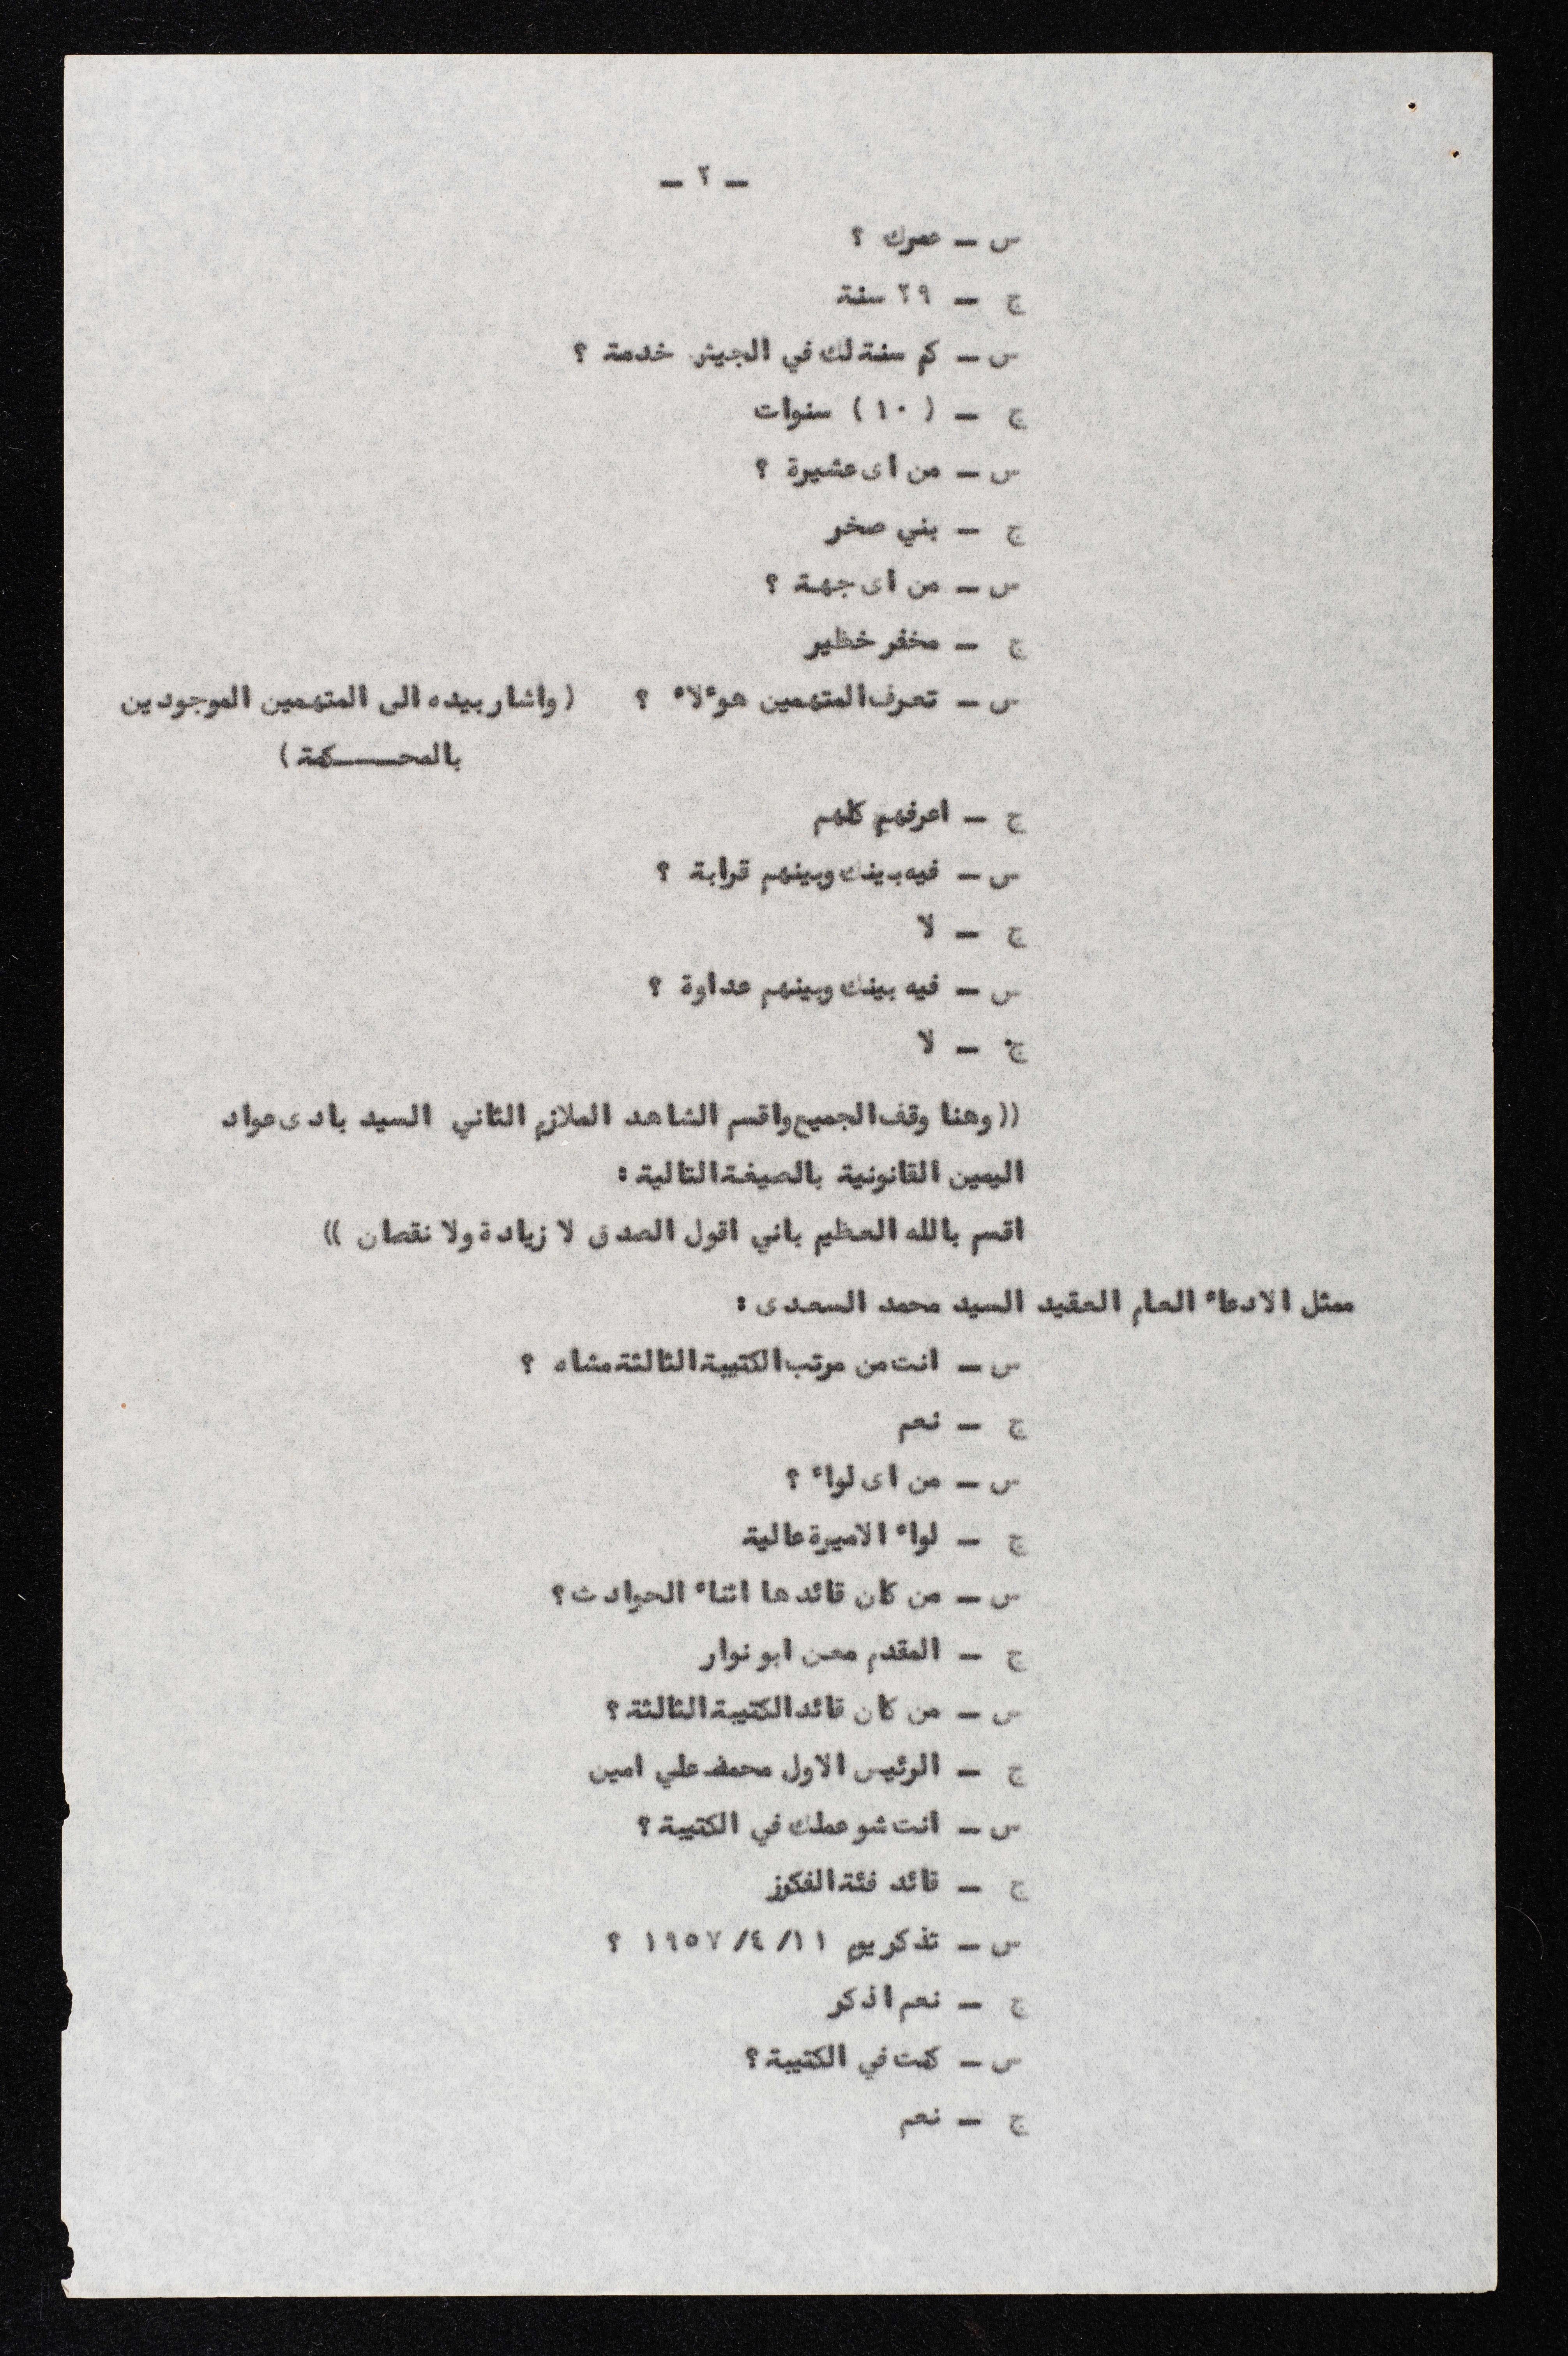 — ٢ —
س — عمرك ؟
ج — ٢٩ سنة
س — كم سنة لك في الجيش خدمة ؟
ج — ( ١٠ ) سنوات
س — من اى عشيرة ؟
ج — بني صخر
س — من اى جهة ؟
ج — مخفر خظير
س — تعرف المتهمين هو*لا* ؟ ( واشار بيده الى المتهمين الموجودين
بالمحـــــكمة )
ج — اعرفهم كلهم
س — فيه بينك وبينهم قرابة ؟
ج — لا
س — فيه بينك وبينهم عداوة ؟
ج — لا
(( وهنا وقف الجميع واقسم الشاهد الملازم الثاني السيد بادى عواد
اليمين القانونية بالصيغة التالية :
اقسم بالله العظيم باني اقول الصدق لا زيادة ولا نقصان ))
ممثل الادعاء العام العقيد السيد محمد السعدى :
س — انت من مرتب الكتيبة الثالثة مشاه ؟
ج — نعم
س — من اى لواء ؟
ج — لواء الاميرة عالية
س — من كان قائدها اثناء الحوادث ؟
ج — المقدم معن ابو نوار
س — من كان قائد الكتيبة الثالثة ؟
ج — الرئيس الاول محمد علي امين
س — انت شو عملك في الكتيبة ؟
ج — قائد فئة الفكرز
س — تذكر يوم ١١/ ٤/ ١٩٥٧ ؟
ج — نعم اذكر
س — كنت في الكتيبة ؟
ج — نعم